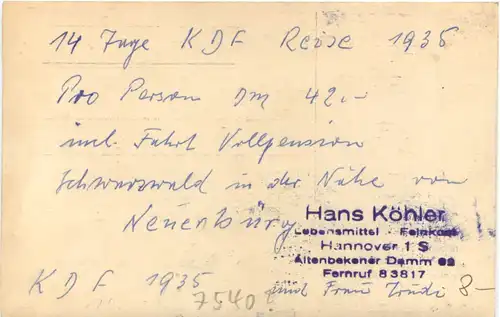 14 Tage KDF Reise 1935
Pro Person DM 42.-
inkl. Fahrt Vollpension
Schwarzwald in der Nähe von
Neuenbürg
Hans Köhler
Lebensmittel Feinkost
Hannover 1 S
Altenbekener Damm 82
Fernruf 83817
KDF 1935
und Frau Trude 8-
7540